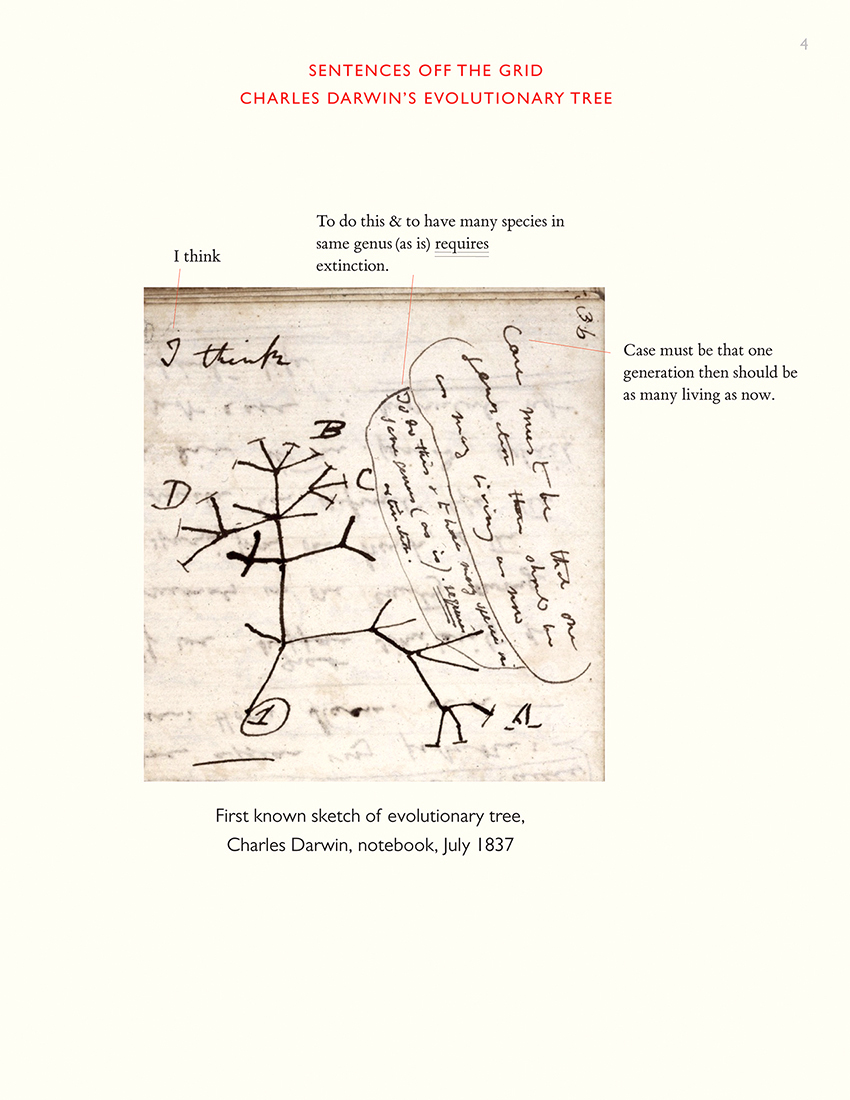 4
SENTENCES OFF THE GRID
CHARLES DARWIN'S EVOLUTIONARY TREE
To do this & to have many species in
same genus (as is) requires
extinction.
I think
Case must be that one
generation then should be
as many living as now.
36
I think
Case must be that one
generation then should be
as many living as now
To do this & to have many species in
same genus (as is). requires
extinction.
B
C
D
A
1
First known sketch of evolutionary tree,
Charles Darwin, notebook, July 1837